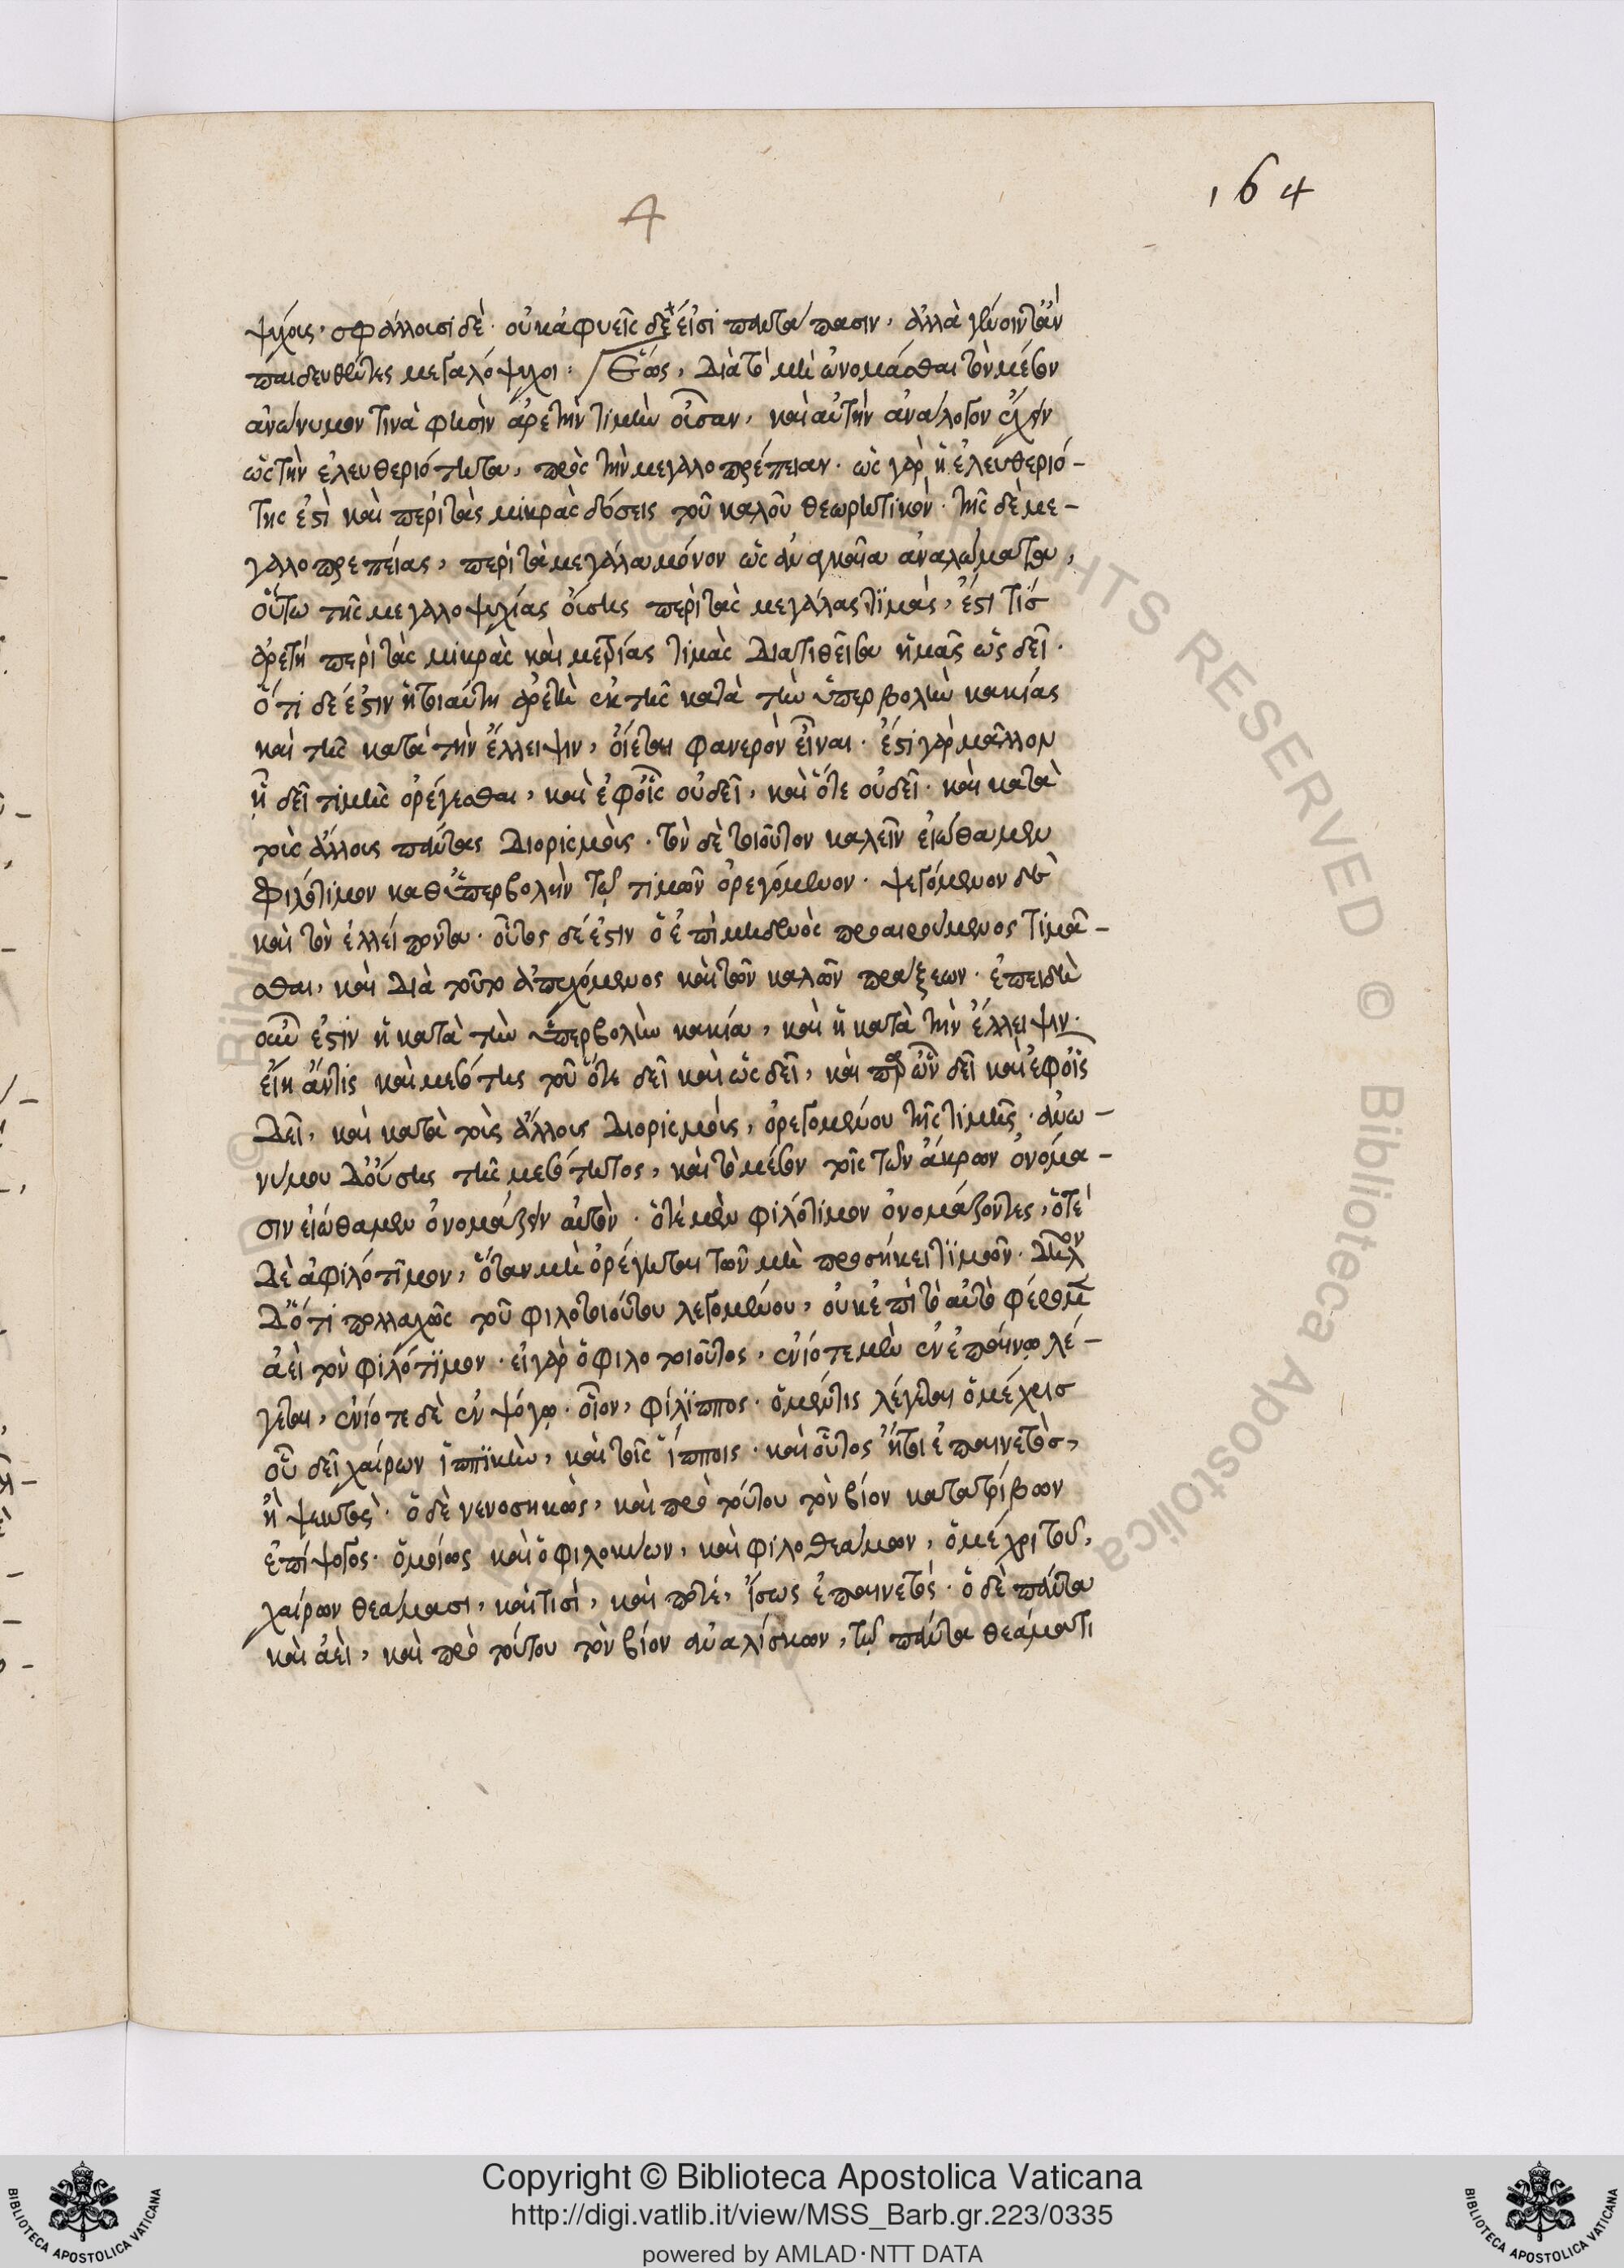 164
4
ψύχοις· σφάλλουσι δὲ· οὐκ ἀφυεῖς δέ εἰσι παντάπασιν, ἀλλὰ γένοιντ' ἂν
παιδευθέντες μεγαλόψυχοι: Ἴσως, διὰ τὸ μὴ ὠνομάσθαι τὸν μέσον
ἀνώνυμον τινὰ φησὶν ἀρετὴν τιμὴν οὖσαν, καὶ αὐτὴν ἀνάλογον ἔχειν
ὡς τὴν ἐλευθεριότητα, πρὸς τὴν μεγαλοπρέπειαν. ὡς γὰρ ἡ ἐλευθεριό-
της ἐστὶ καὶ περὶ τὰς μικρὰς δόσεις τοῦ καλοῦ θεωρητικὸν· τῆς δὲ με-
γαλοπρεπείας, περὶ τὰ μεγάλα μόνον ὡς ἀναγκαῖα ἀναλώματα,
οὕτω τῆς μεγαλοψυχίας οὔσης περὶ τὰς μεγάλας τιμὰς, ἔστι τίς
ἀρετὴ περὶ τὰς μικρὰς καὶ μετρίας τιμὰς διατιθεῖσα ἡμᾶς ὡς δεῖ.
ὅτι δέ ἐστιν ἡ τοιαύτη ἀρετὴ ἐκ τῆς κατὰ τὴν ὑπερβολὴν κακίας
καὶ τῆς κατὰ τὴν ἔλλειψιν, οἴεται φανερὸν εἶναι. ἔστι γὰρ μᾶλλον
ἢ δεῖ τιμῆς ὀρέγεσθαι, καὶ ἐφ' οἷς οὐ δεῖ, καὶ ὅτε οὐ δεῖ. καὶ κατὰ
τοὺς ἄλλους πάντας διορισμοὺς. τὸν δὲ τοιοῦτον καλεῖν εἰώθαμεν
φιλότιμον καθ' ὑπερβολὴν τῶν τιμῶν ὀρεγόμενον. ψεγόμενον δὲ
καὶ τὸν ἐλλείποντα. οὗτος δέ ἐστιν ὁ ἐπὶ μηδενὸς προαιρούμενος τιμᾶ-
σθαι, καὶ διὰ τοῦτο ἀπεχόμενος καὶ τῶν καλῶν πράξεων. ἐπειδὴ
οὖν ἐστὶν ἡ κατὰ τὴν ὑπερβολὴν κακία, καὶ ἡ κατὰ τὴν ἔλλειψιν.
εἴη ἄν τις καὶ μεσότης τοῦ ὅτε δεῖ καὶ ὡς δεῖ, καὶ παρ' ὧν δεῖ καὶ ἐφ' οἷς
δεῖ, καὶ κατὰ τοὺς ἄλλους διορισμοὺς, ὀρεγομένου τῆς τιμῆς. ἀνω-
νύμου δ' οὔσης τῆς μεσότητος, καὶ τὸ μέσον τοῖς τῶν ἄκρων ὀνόμα-
σιν εἰώθαμεν ὀνομάζειν αὐτὸν. ὁτὲ μὲν φιλότιμον ὀνομάζοντες, ὁτὲ
δὲ ἀφιλότιμον, ὅταν μὴ ὀρέγηται τῶν μὴ προσήκει τιμῶν. δῆλον
δ' ὅτι πολλαχῶς τοῦ φιλοτοιούτου λεγομένου, οὐκ ἐπὶ τὸ αὐτὸ φέρομεν
ἀεὶ τὸν φιλότιμον. εἰ γὰρ ὁ φιλοτοιοῦτος, ἐνίοτε μὲν ἐν ἐπαίνῳ λέ-
γεται, ἐνίοτε δὲ ἐν ψόγῳ. οἷον, φίλιππος. ὁ μέν τις λέγεται ὁ μέχρις
οὗ δεῖ χαίρων ἱππικὴν, καὶ τοῖς ἵπποις. καὶ οὗτος ἤτοι ἐπαινετὸς,
ἢ ψεκτὸς. ὁ δὲ νενοσηκὼς, καὶ πρὸ τούτου τὸν βίον κατατρίβων
ἐπίψογος. ὁμοίως καὶ ὁ φιλοκύων, καὶ φιλοθεάμων, ὁ μέχρι τοῦ,
χαίρων θεάμασι, καὶ τισὶ, καὶ ποτέ, ἴσως ἐπαινετός. ὁ δὲ πάντα
καὶ ἀεὶ, καὶ πρὸ τούτου τὸν βίον ἀναλίσκων, τῷ πάντα θεάματι
Copyright © Biblioteca Apostolica Vaticana
http://digi.vatlib.it/view/MSS_Barb.gr.223/0335
powered by AMLAD·NTT DATA